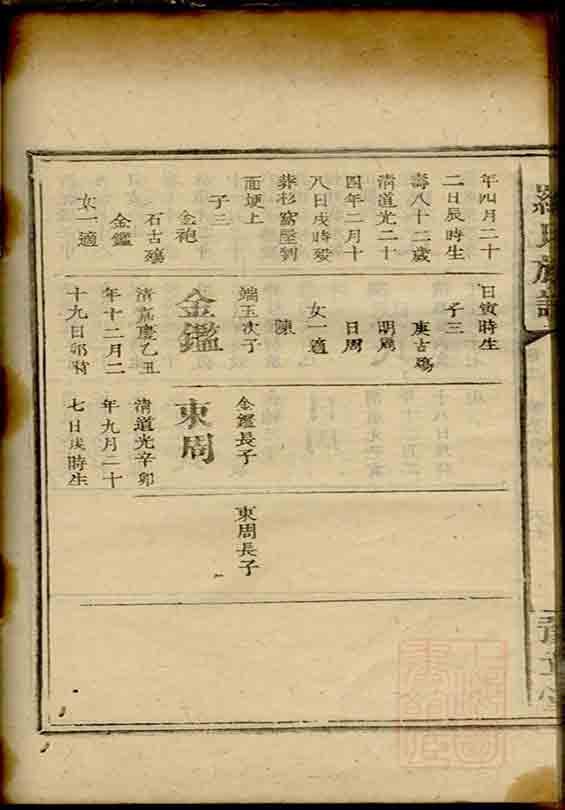 羅氏族譜
年四月二十
二日辰時生
壽八十二歲
清道光二十
四年二月十
八日戌時歿
葬杉窩壟劉
面埂上
子三
金袍
石古殤
金鑑
女一適
日寅時生
子三
庚古殤
明鳳
日周
女一適
陳
端玉次子
金鑑
清嘉慶乙丑
年十二月二
十九日卯時
金鑑長子
東周
清道光辛卯
年九月二十
七日戌時生
東周長子